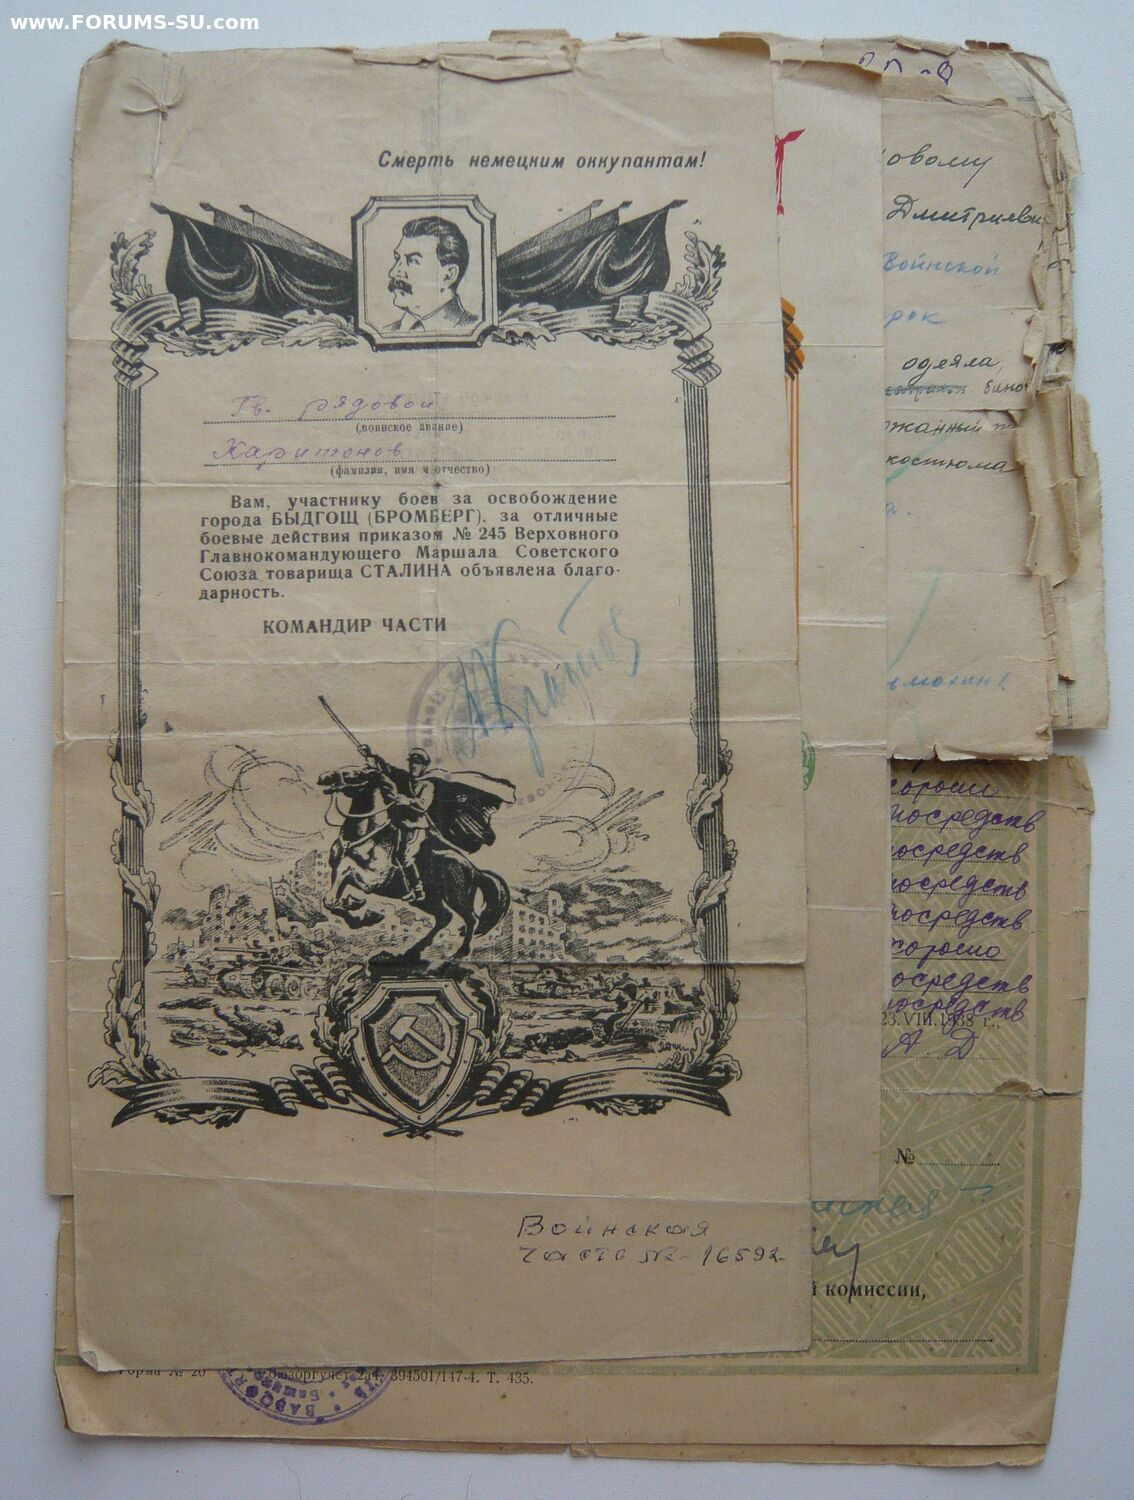 www.FORUMS-SU.com
Смерть немецким оккупантам!
Гв. рядовой
(воинское звание)
Харитонов
(фамилия, имя и отчество)
Вам, участнику боев за освобождение
города БЫДГОЩ (БРОМБЕРГ), за отличные
боевые действия приказом № 245 Верховного
Главнокомандующего Маршала Советского
Союза товарища СТАЛИНА объявлена благо-
дарность.
КОМАНДИР ЧАСТИ
Войнская
часть № 16592
овому
Дмитриеви
Войнской
рок
одеяла,
бино
жанный
костюма
а.
хорошо
посредств
посредств
посредств
посредств
хорошо
посредств
посредств
23.VIII.1938 г.,
А. Д
№
й комиссии,
Форма № 20
Союзоргучет 2а4, 394501/147-4. Т. 435.